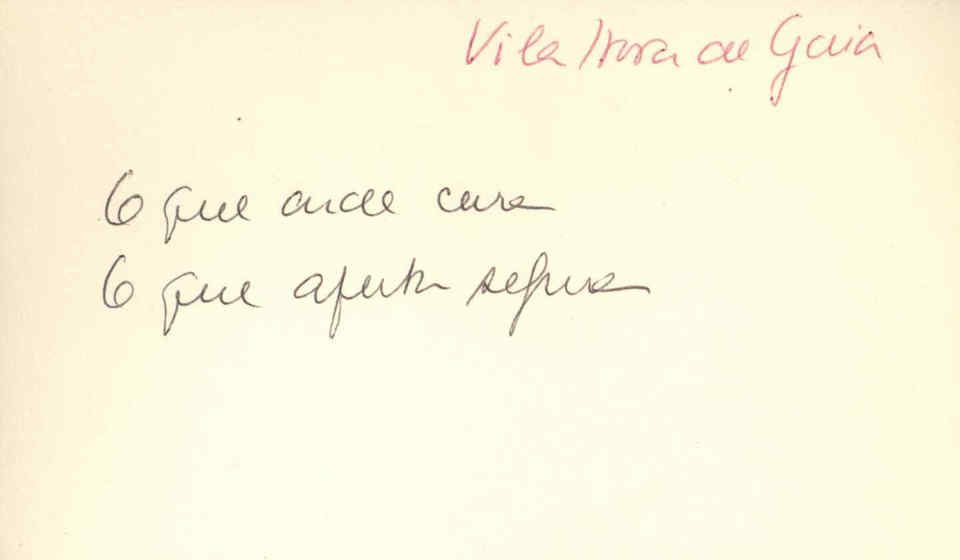 Vila Nova de Gaia
O que arde cura
O que aperta segura